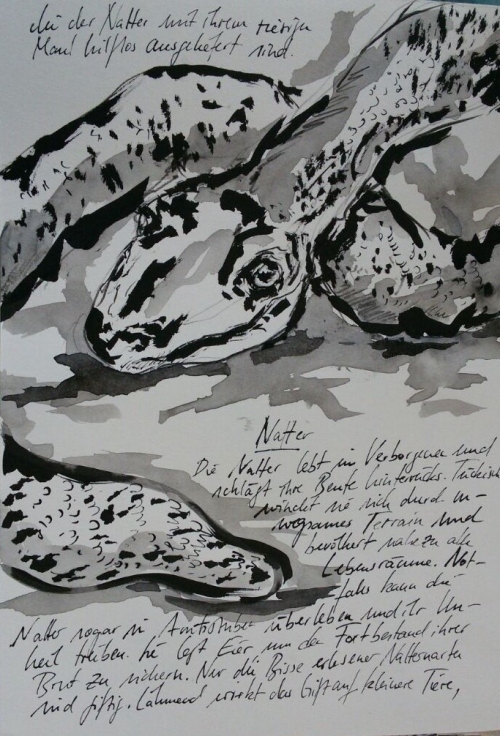 die der Natter mit ihrem riesigen
Maul hilflos ausgeliefert sind.
Natter
Die Natter lebt im Verborgenen und
schlägt ihre Beute hinterrücks. Tückisch
windet sie sich durch un-
wegsames Terrain und
bevölkert nahezu alle
Lebensräume. Not-
falls kann die
Natter sogar in Amtsstuben überleben und ihr Un-
heil treiben. Sie legt Eier um den Fortbestand ihrer
Brut zu sichern. Nur die Bisse erlesener Natternarten
sind giftig. Lähmend wirkt das Gift auf kleinere Tiere,